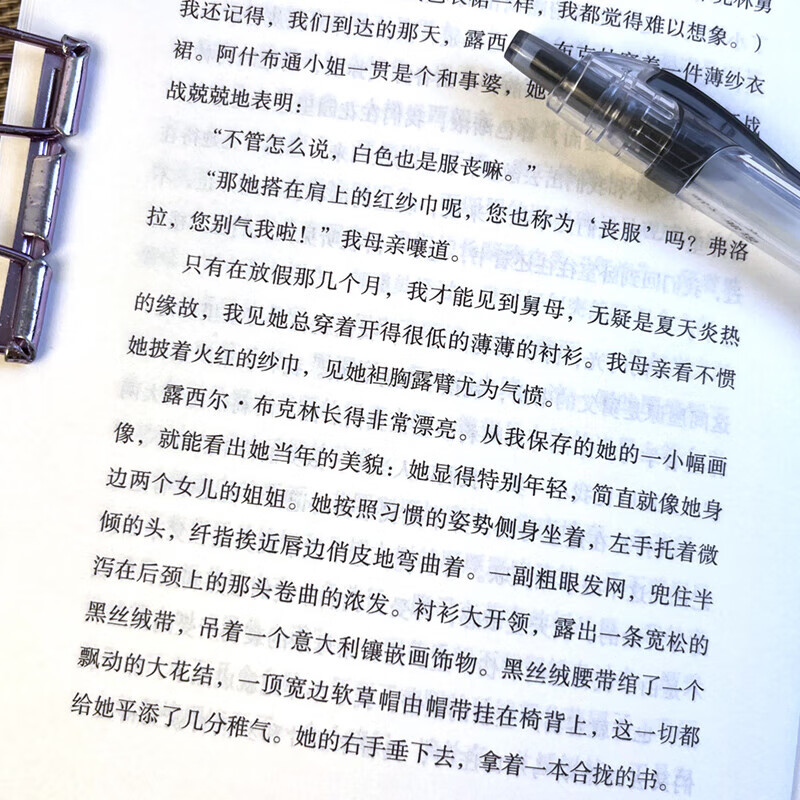 衣裙一样，我都觉得难以想象。）
我还记得，我们到达的那天，露西 布克林穿着一件薄纱衣
裙。阿什布通小姐一贯是个和事婆，她 战
战兢兢地表明：
“不管怎么说，白色也是服丧嘛。”
“那她搭在肩上的红纱巾呢，您也称为‘丧服’吗？弗洛
拉，您别气我啦！”我母亲嚷道。
只有在放假那几个月，我才能见到舅母，无疑是夏天炎热
的缘故，我见她总穿着开得很低的薄薄的衬衫。我母亲看不惯
她披着火红的纱巾，见她袒胸露臂尤为气愤。
露西尔·布克林长得非常漂亮。从我保存的她的一小幅画
像，就能看出她当年的美貌：她显得特别年轻，简直就像她身
边两个女儿的姐姐。她按照习惯的姿势侧身坐着，左手托着微
倾的头，纤指挨近唇边俏皮地弯曲着。一副粗眼发网，兜住半
泻在后颈上的那头卷曲的浓发。衬衫大开领，露出一条宽松的
黑丝绒带，吊着一个意大利镶嵌画饰物。黑丝绒腰带绾了一个
飘动的大花结，一顶宽边软草帽由帽带挂在椅背上，这一切都
给她平添了几分稚气。她的右手垂下去，拿着一本合拢的书。